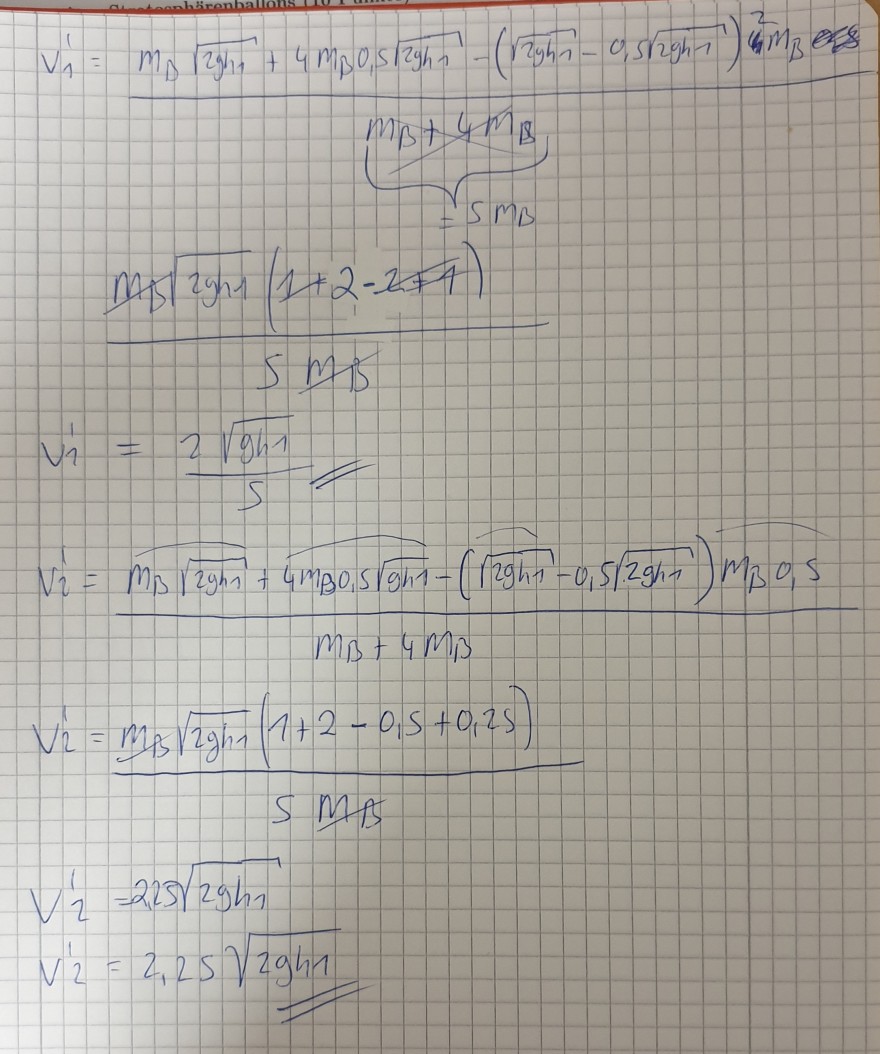 Stratosphärenballons (10 Punkte)
v₁' = m_B √2gh₁ + 4 m_B 0,5 √2gh₁ - (√2gh₁ - 0,5 √2gh₁) 2 m_B
m_B + 4 m_B
= 5 m_B
m_B √2gh₁ (1 + 2 - 2 + 1)
5 m_B
v₁' = 2 √gh₁
5
v₂' = m_B √2gh₁ + 4 m_B 0,5 √gh₁ - (√2gh₁ - 0,5 √2gh₁) m_B 0,5
m_B + 4 m_B
v₂' = m_B √2gh₁ (1 + 2 - 0,5 + 0,25)
5 m_B
v₂' = 2,25 √2gh₁
v₂' = 2,25 √2gh₁